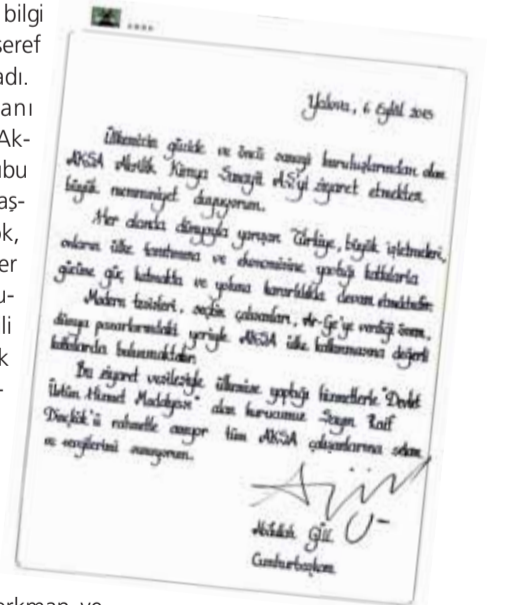 bilgi
şeref
adı.
anı
Ak-
ubu
aş-
ok,
er
u-
li
k
-
Yalova, 6 Eylül 2013
Ülkemizin güzide ve öncü sanayi kuruluşlarından olan
AKSA Akrilik Kimya Sanayii AŞ'yi ziyaret etmekten
büyük memnuniyet duyuyorum.
Her alanda dünyayla yarışan Türkiye, büyük işletmeleri,
onların ülke tanıtımına ve ekonomisine yaptığı katkılarla
gücüne güç katmakta ve yoluna kararlılıkla devam etmektedir.
Modern tesisleri, seçkin çalışanları, Ar-Ge'ye verdiği önem,
dünya pazarlarındaki yeriyle AKSA ülke kalkınmasına değerli
katkılarda bulunmaktadır.
Bu ziyaret vesilesiyle ülkemize yaptığı hizmetlerle "Devlet
Üstün Hizmet Madalyası" alan kurucumuz Sayın Raif
Dinçkök'ü rahmetle anıyor tüm AKSA çalışanlarına selam
ve sevgilerimi sunuyorum.
Abdullah GÜL
Cumhurbaşkanı
erkman ve